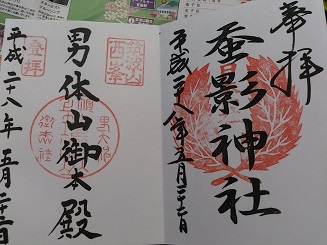 奉拝
蚕影神社
平成二十八年五月二十二日
筑波山
西峯
登拝
男体山御本殿
平成二十八年五月二十二日